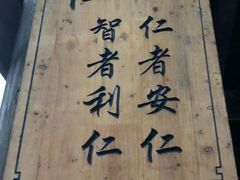 仁者安仁
智者利仁